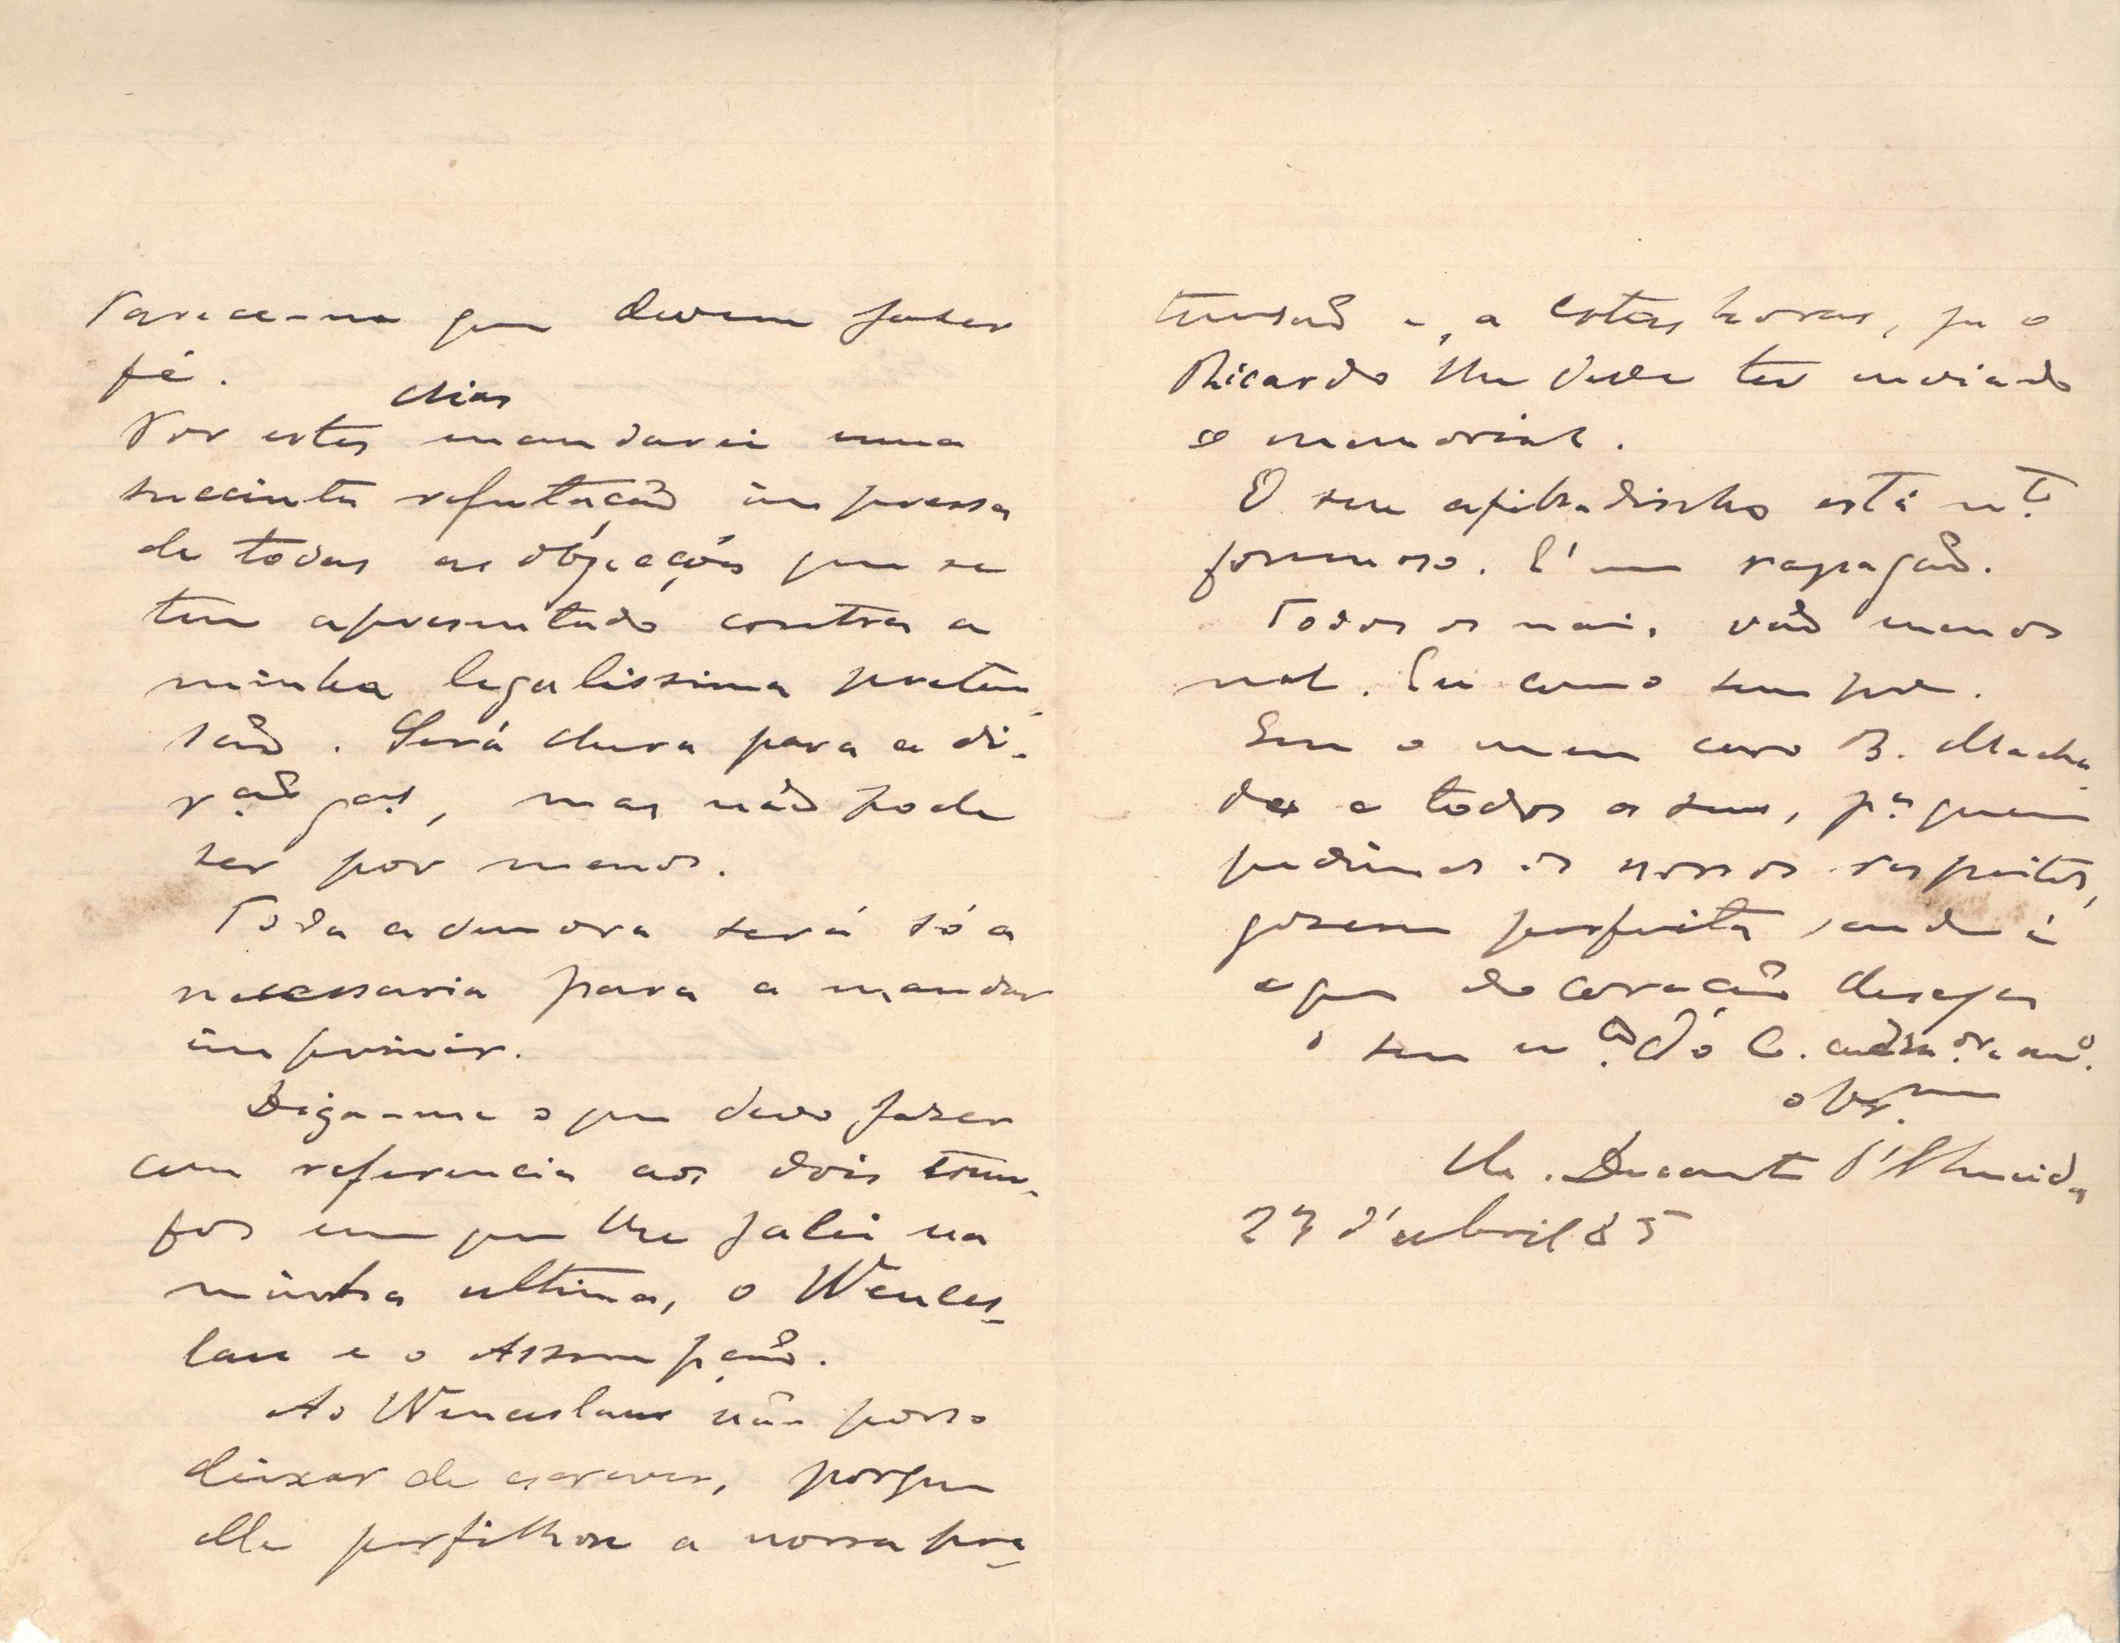 Parece-me que devem fazer
fé.
dias
Por estes mandarei uma
succinta refutação impressa
de todas as objecções que se
tem apresentado contra a
minha legalissima preten-
são. Será dura para a di-
mas não pode
ser por menos.
Toda a demora será só a
necessaria para a mandar
imprimir.
Diga-me o que devo fazer
com referencia aos dois trum-
fos em que lhe falei na
minha ultima, o Wences-
lau e o Assumpção.
Ao Wenceslau não posso
deixar de escrever, porque
elle perfilhou a nossa pre-
tensão e, a estas horas, ja o
Ricardo lhe deve ter enviado
o memorial.
O seu afilhadinho está m.to
formoso. É um rapagão.
Todos os mais vão menos
mal. Eu como sempre.
Que o meu caro B. Macha
do e todos os seus, p.a quem
pedimos os nossos respeitos,
gosem perfeita saude é
o que do coração deseja
o seu C. adm.or e am.o
obr.mo
Ma. Duarte d'Almeida
27 d'abril 85